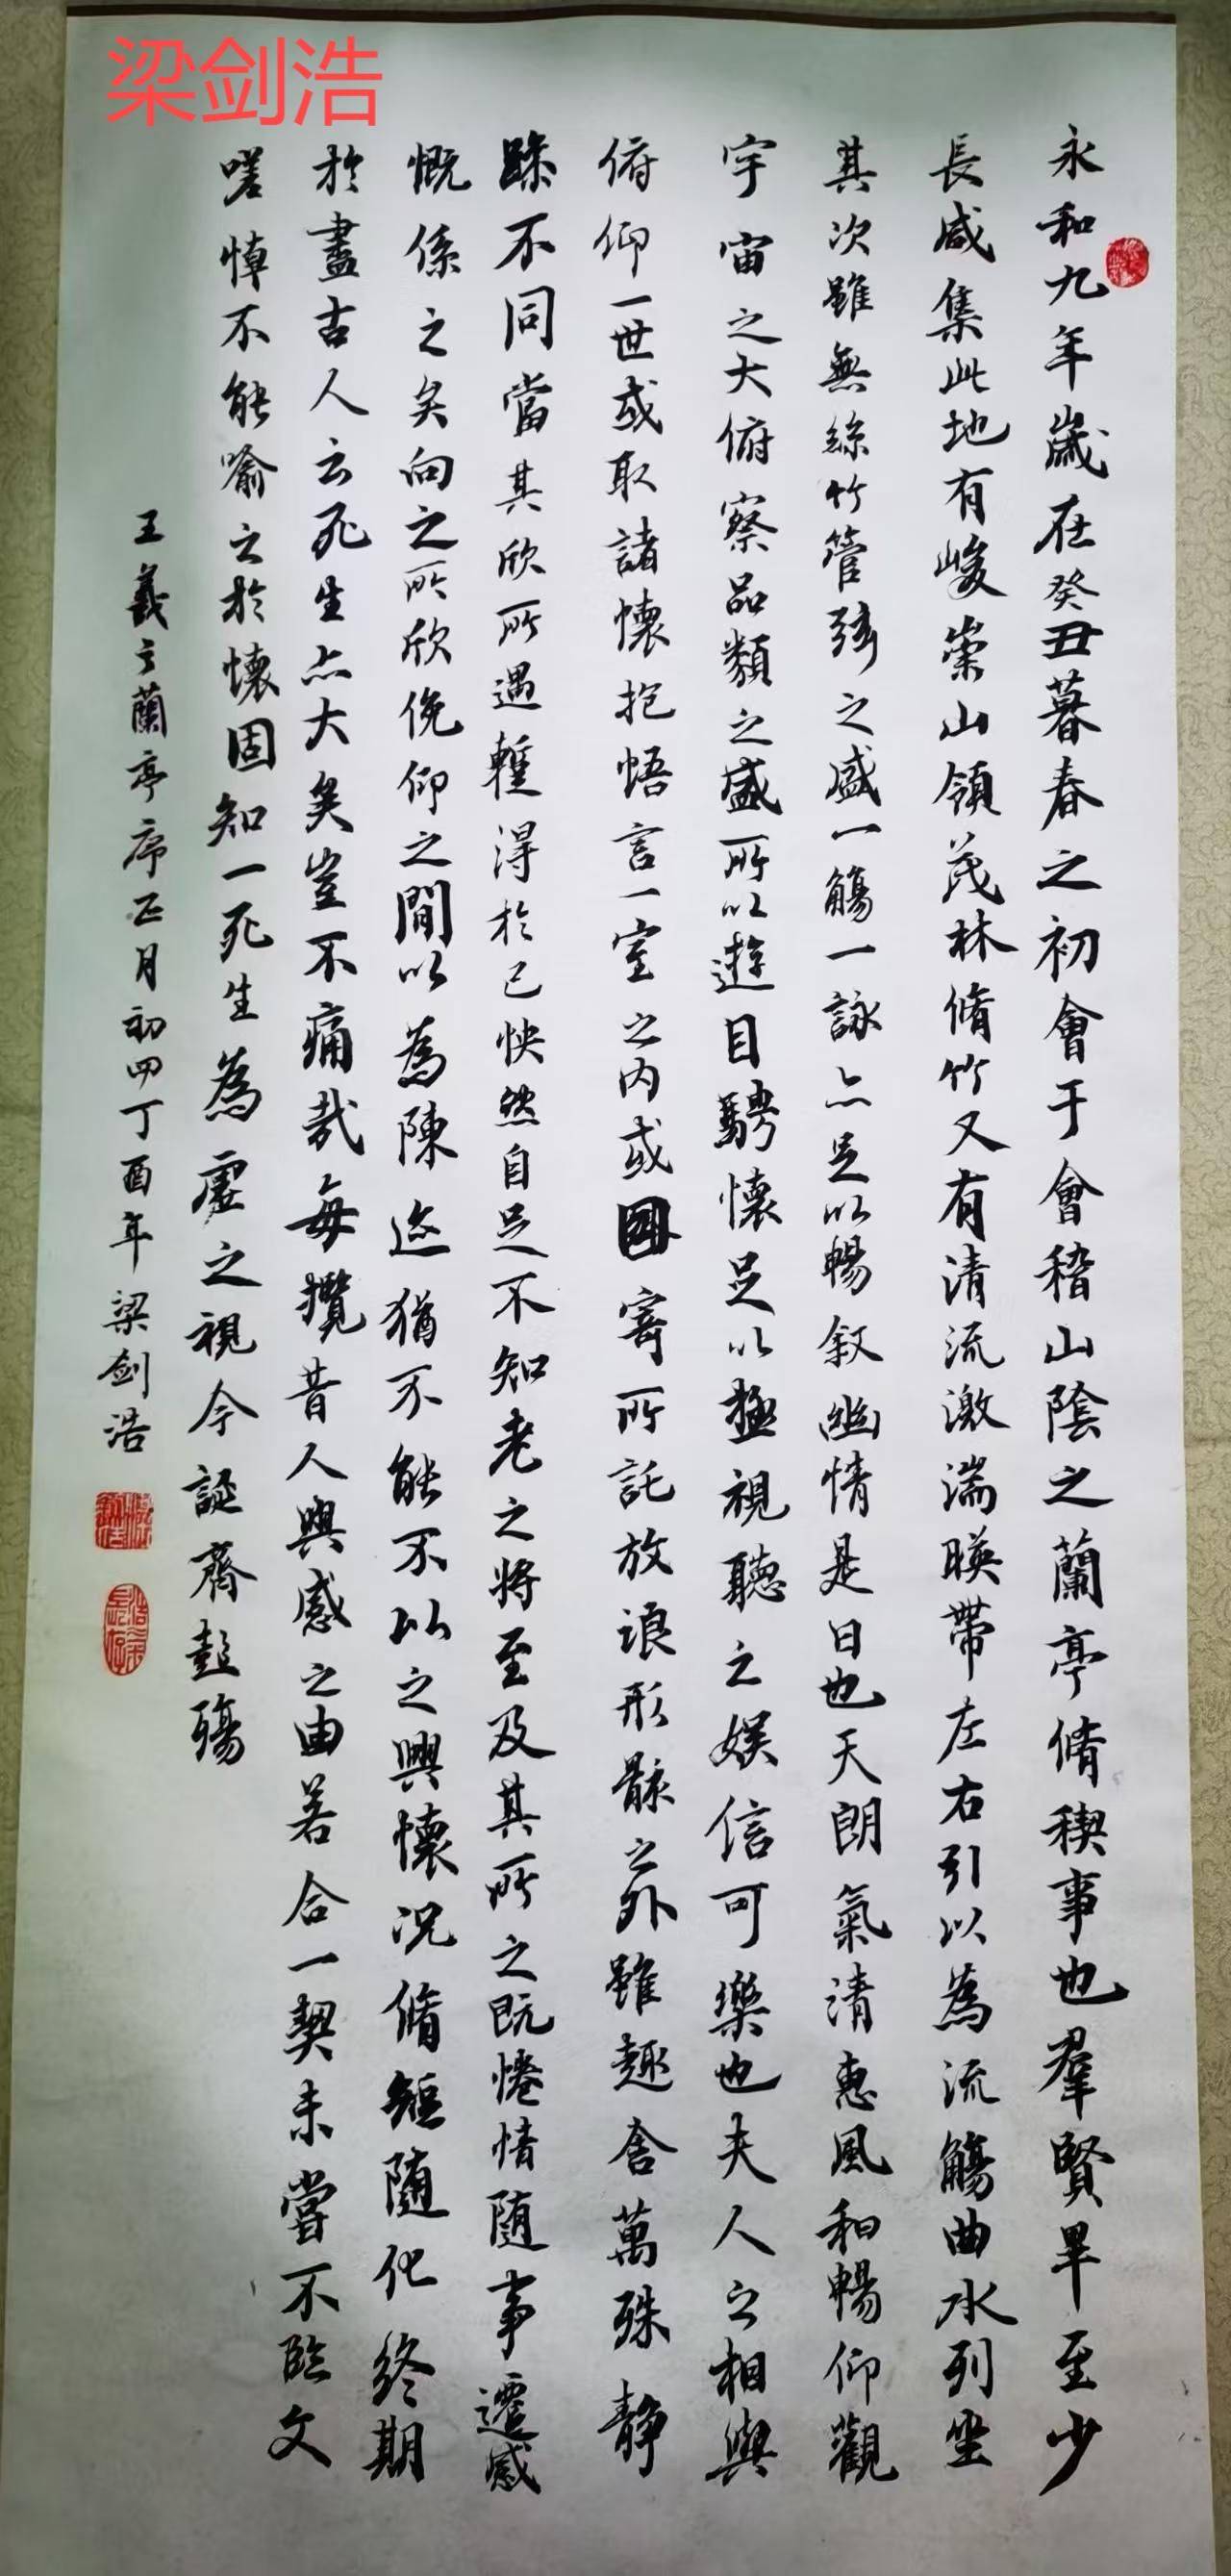 梁剑浩
永和九年歲在癸丑暮春之初會于會稽山陰之蘭亭脩稧事也羣賢畢至少
長咸集此地有峻崇山領茂林脩竹又有清流激湍暎帶左右引以為流觴曲水列坐
其次雖無絲竹管弦之盛一觴一詠亦足以暢叙幽情是日也天朗氣清惠風和暢仰觀
宇宙之大俯察品類之盛所以遊目騁懷足以極視聽之娛信可樂也夫人之相與
俯仰一世或取諸懷抱悟言一室之内或因寄所託放浪形骸之外雖趣舍萬殊静
躁不同當其欣所遇蹔得於己怏然自足不知老之將至及其所之既惓情随事遷感
慨係之矣向之所欣俛仰之間以為陳迹猶不能不以之興懷况脩短随化終期
於盡古人云死生亦大矣豈不痛哉每攬昔人興感之由若合一契未嘗不臨文
嗟悼不能喻之於懷固知一死生為虛之視今誕齊彭殤
王羲之蘭亭序正月初四丁酉年梁剑浩